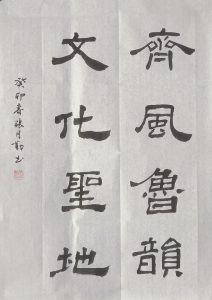 齊風魯韻
文化聖地
癸卯春張月勤书